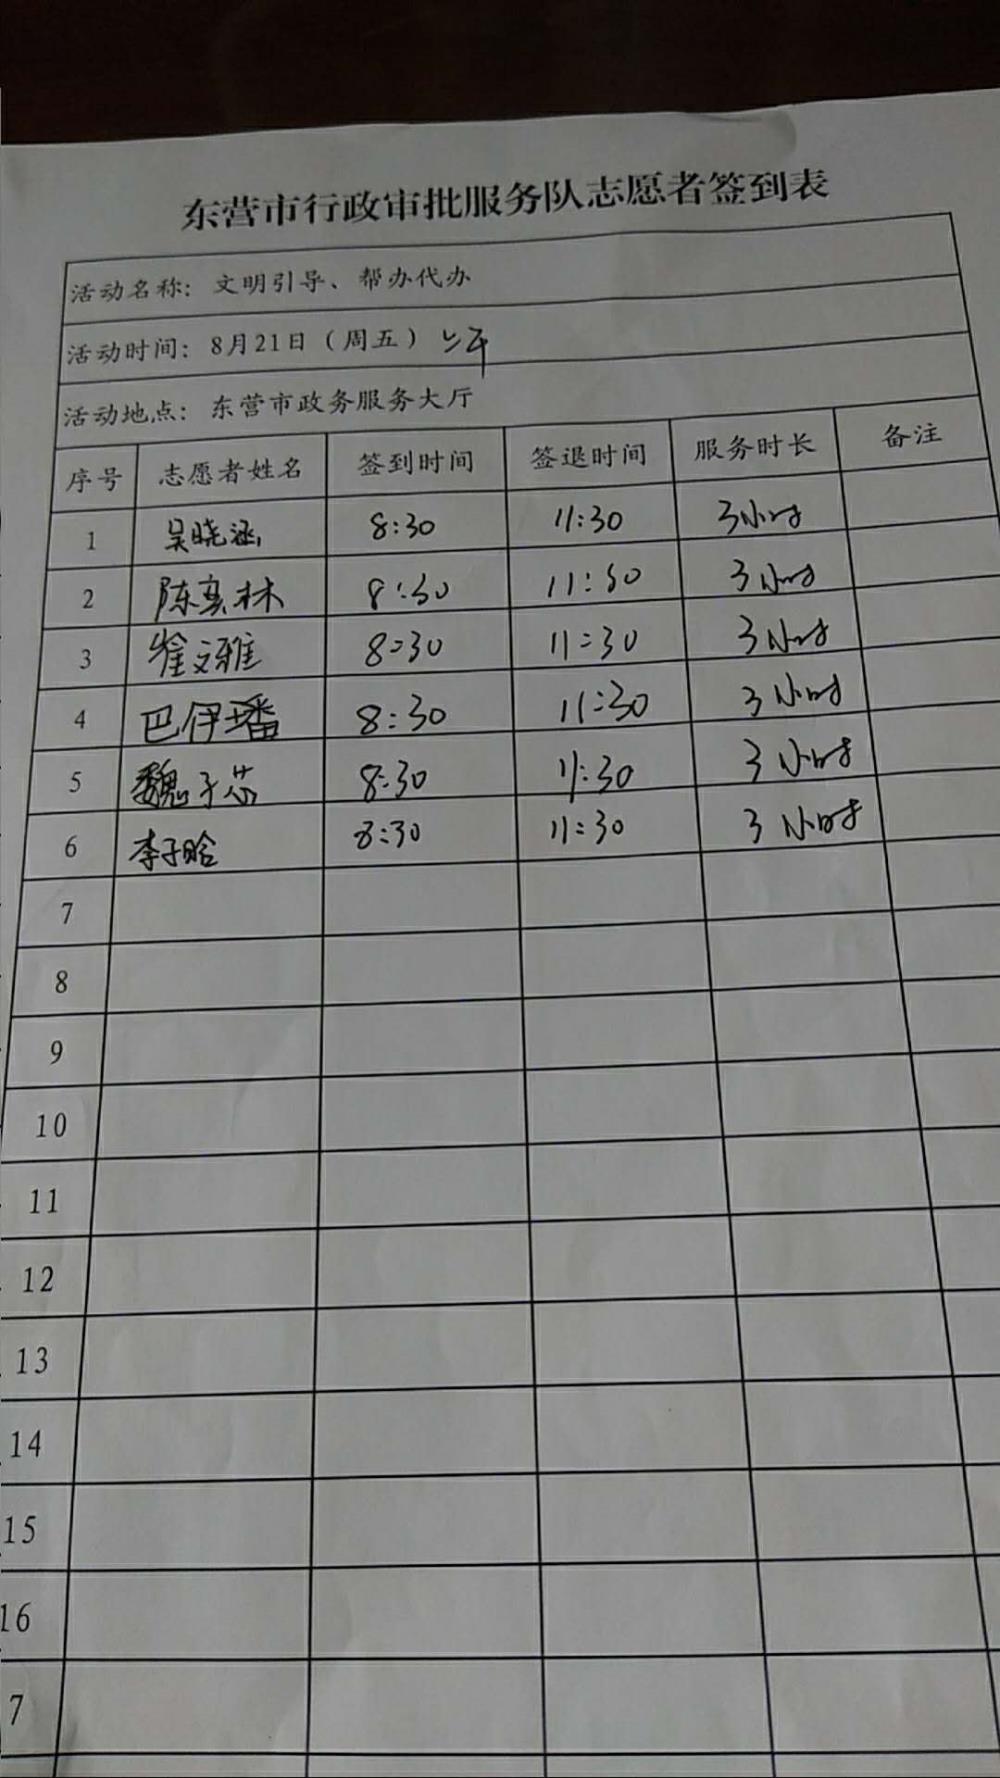 东营市行政审批服务队志愿者签到表
活动名称：文明引导、帮办代办
活动时间：8月21日（周五）上午
活动地点：东营市政务服务大厅
序号 志愿者姓名 签到时间 签退时间 服务时长 备注
1 吴晓涵 8:30 11:30 3小时
2 陈真林 8:30 11:30 3小时
3 崔文雅 8:30 11:30 3小时
4 巴伊璠 8:30 11:30 3小时
5 魏子芯 8:30 11:30 3小时
6 李子晗 8:30 11:30 3小时
7
8
9
10
11
12
13
14
15
16
7